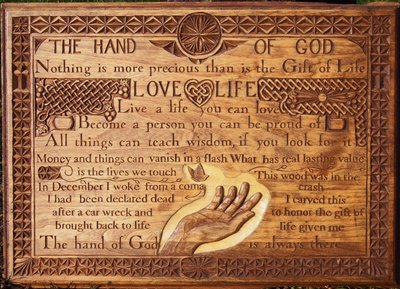 THE HAND OF GOD
Nothing is more precious than is the Gift of Life
LOVE LIFE
Live a life you can love
Become a person you can be proud of
All things can teach wisdom, if you look for it
Money and things can vanish in a flash What has real lasting value
is the lives we touch
This wood was in the
In December I woke from a coma
crash
I had been declared dead
I carved this
after a car wreck and
to honor the gift of
brought back to life
life given me
The hand of God is always there